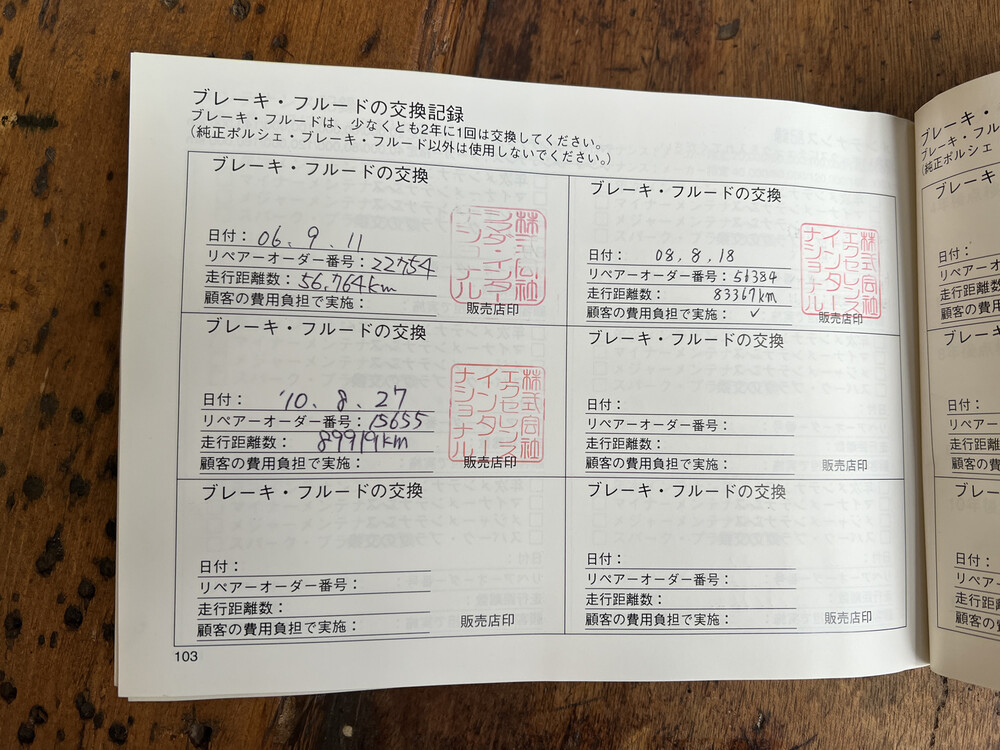 ブレーキ・フルードの交換記録
ブレーキ・フルードは、少なくとも2年に1回は交換してください。
(純正ポルシェ・ブレーキ・フルード以外は使用しないでください。)
ブレーキ・フルードの交換
日付: 06. 9. 11
リペアーオーダー番号: 22754
走行距離数: 56,764km
顧客の費用負担で実施:
販売店印
ブレーキ・フルードの交換
日付: 08. 8. 18
リペアーオーダー番号: 51384
走行距離数: 83367km
顧客の費用負担で実施: ✓
株式会社
エクセレンス
インター
ナショナル
販売店印
ブレーキ・フルードの交換
日付: '10. 8. 27
リペアーオーダー番号: 15655
走行距離数: 89919km
顧客の費用負担で実施:
株式会社
エクセレンス
インター
ナショナル
販売店印
ブレーキ・フルードの交換
日付:
リペアーオーダー番号:
走行距離数:
顧客の費用負担で実施:
販売店印
ブレーキ・フルードの交換
日付:
リペアーオーダー番号:
走行距離数:
顧客の費用負担で実施:
販売店印
ブレーキ・フルードの交換
日付:
リペアーオーダー番号:
走行距離数:
顧客の費用負担で実施:
販売店印
103
ブレーキ・
ブレーキ・フル
(純正ポルシェ
ブレーキ
日付:
リペアーオ
走行距離数
顧客の費
ブレーキ
日付:
リペアー
走行距離
顧客の費
ブレー
日付:
リペア
走行距
顧客の